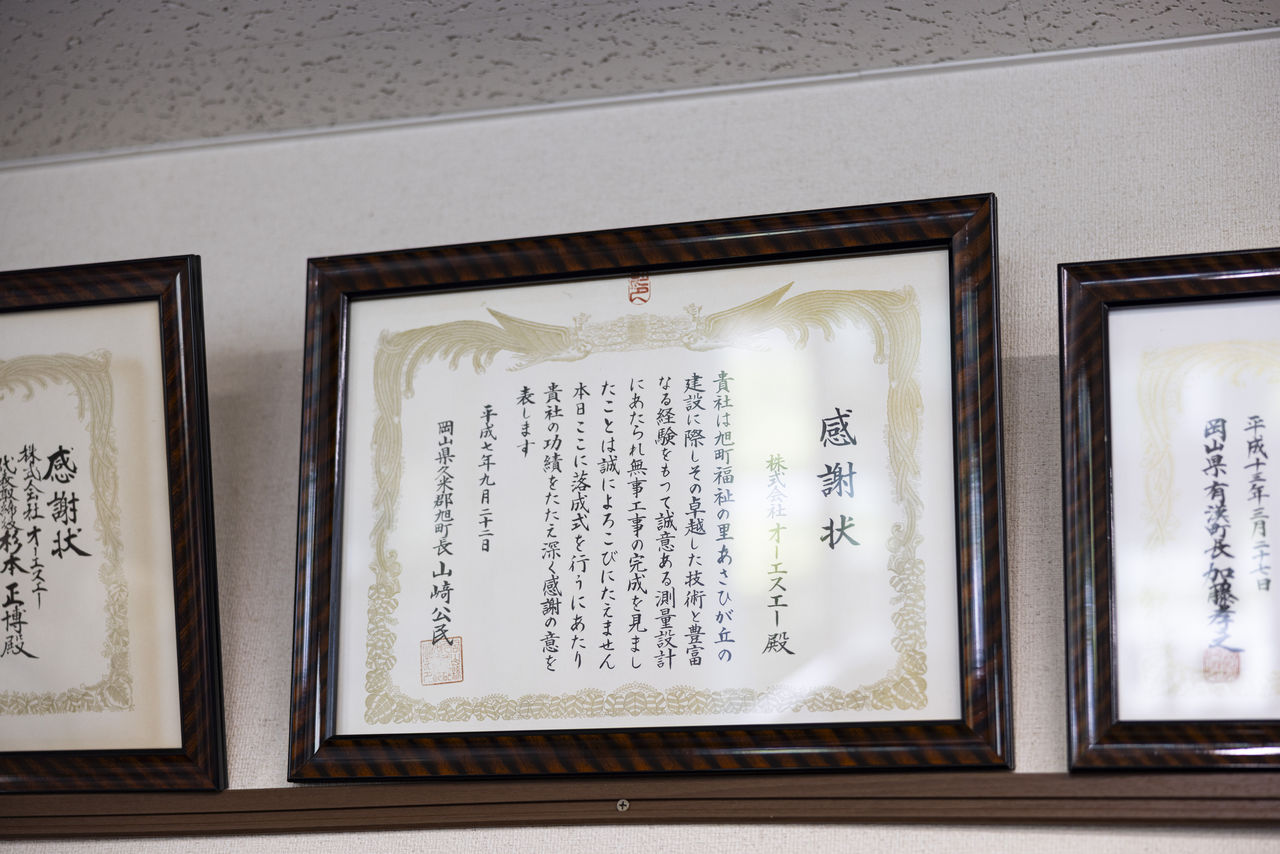 感謝状
株式会社 オーエスエー
杉本正博殿
感謝状
株式会社 オーエスエー 殿
貴社は旭町福祉の里あさひが丘の
建設に際しその卓越した技術と豊富
なる経験をもって誠意ある測量設計
にあたられ無事工事の完成を見まし
たことは誠によろこびにたえません
本日ここに落成式を行うにあたり
貴社の功績をたたえ深く感謝の意を
表します
平成七年九月二十二日
岡山県久米郡旭町長 山﨑公民
平成十三年三月二十七日
岡山県有漢町長 加藤孝